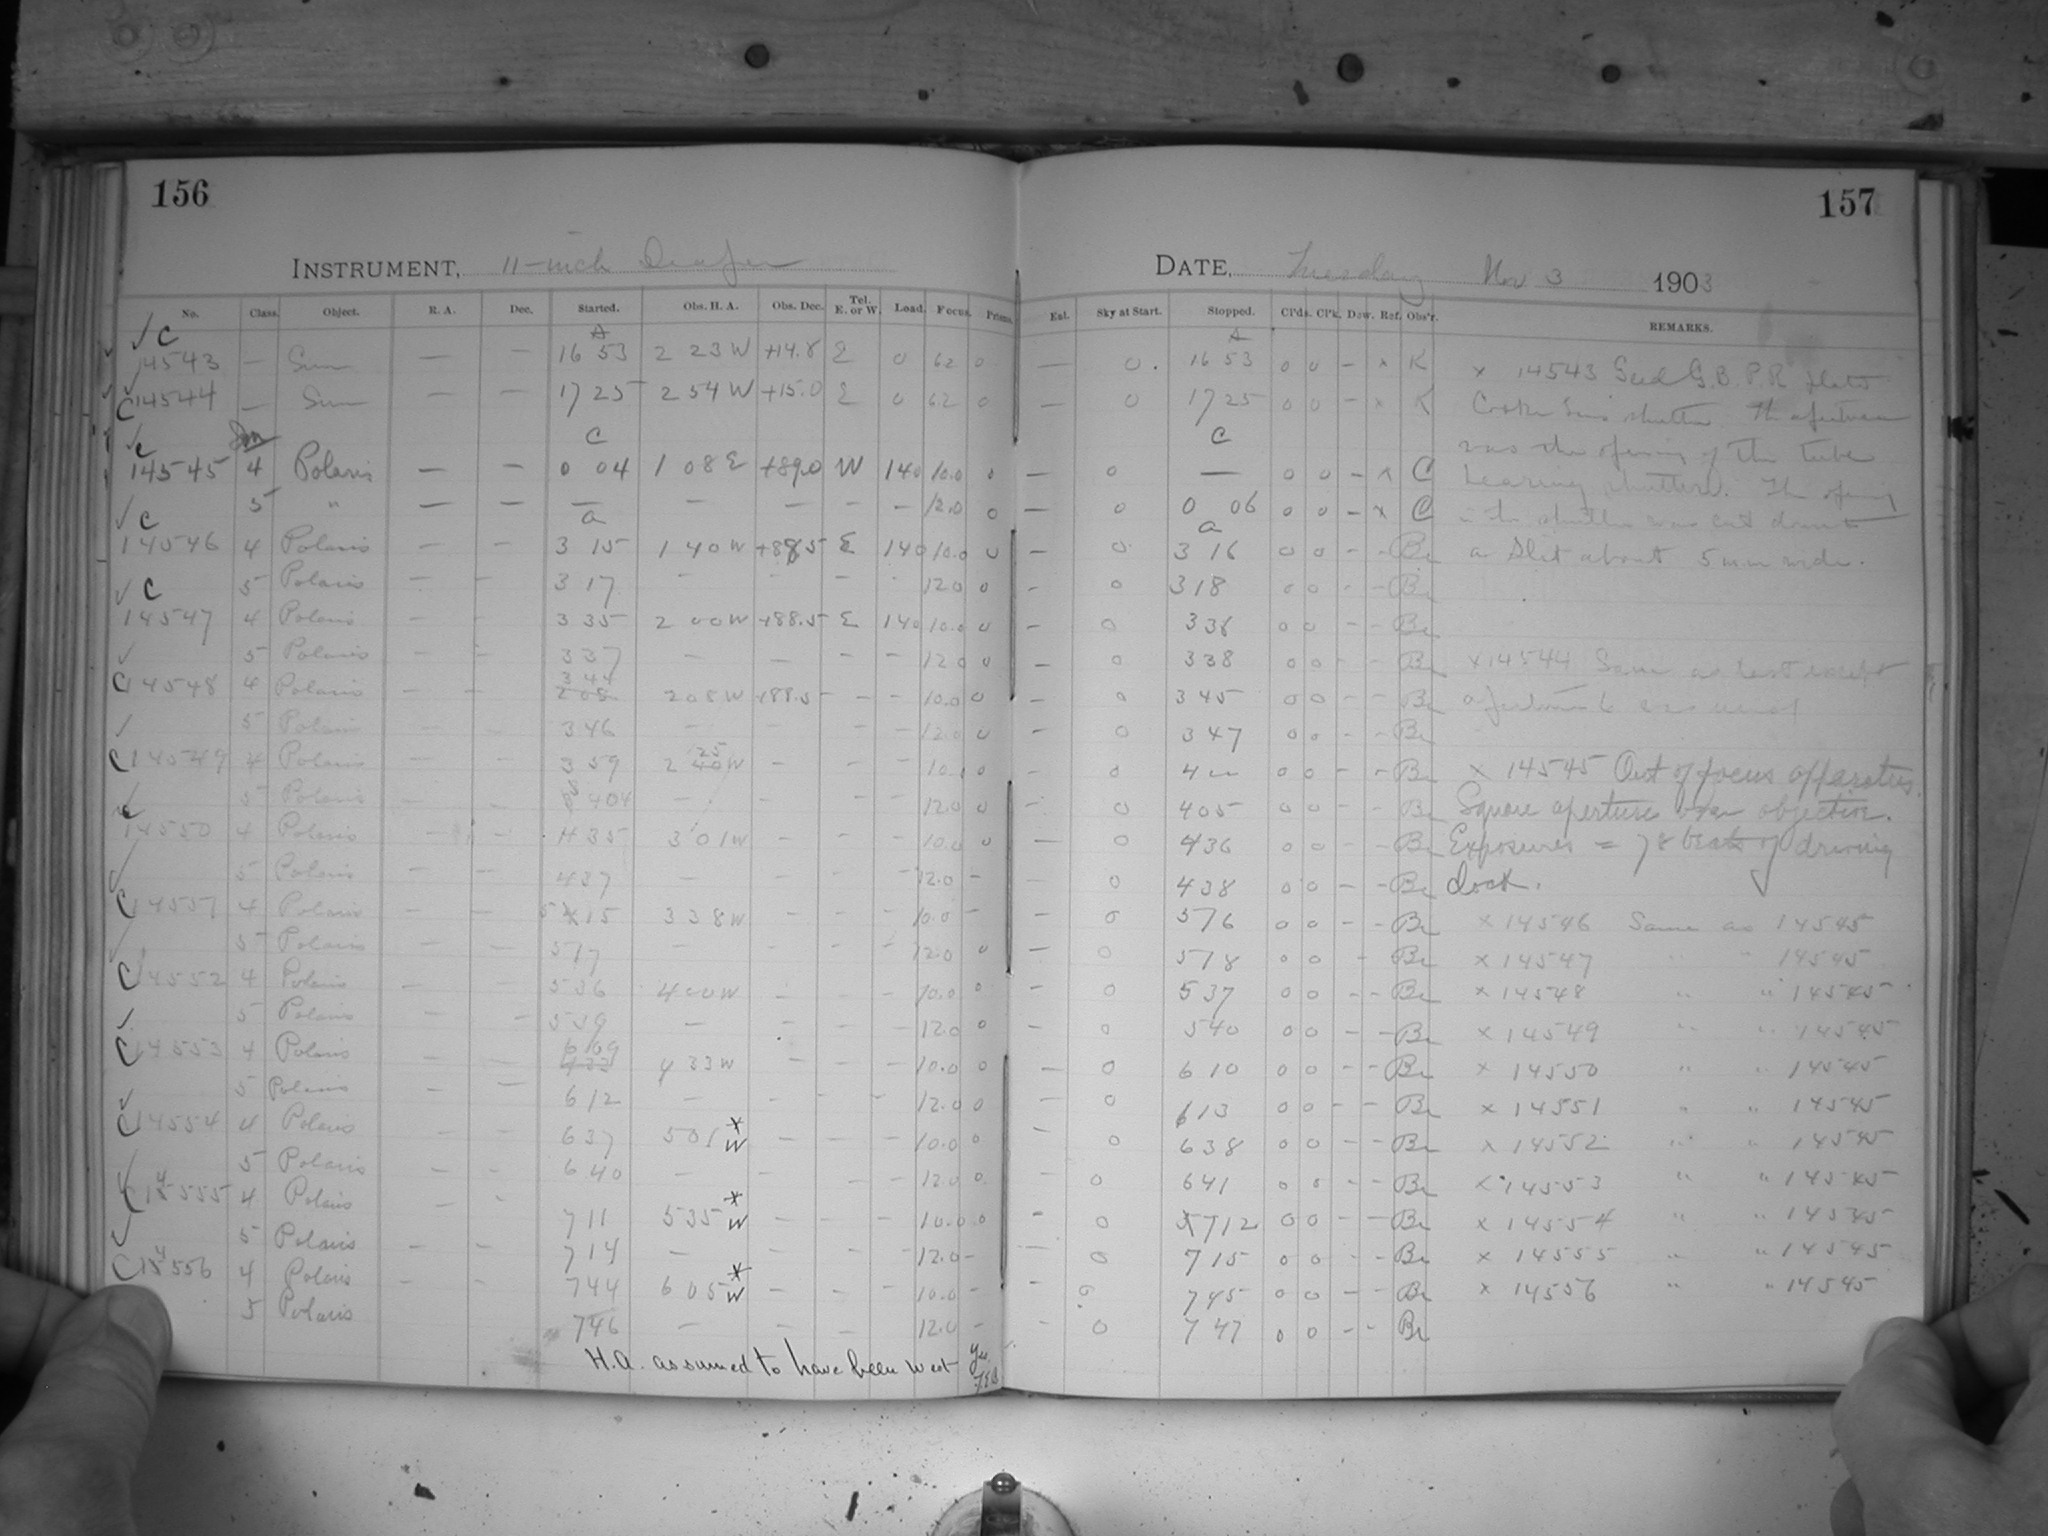 156
INSTRUMENT, 11-inch Draper
No. Class. Object. R. A. Dec. Started. Obs. H. A. Obs. Dec. Tel. E. or W. Load. Focus. Prisms.
14543 — Sun — — 16 53 2 23 W +14.8 E 0 62 0
14544 — Sun — — 17 25 2 54 W +15.0 E 0 62 0
C
14545 4 Polaris — — 0 04 1 08 E +89.0 W 140 10.0 0
5 " — — — — — — — 12.0 0
a
14546 4 Polaris — — 3 15 1 40 W +88.5 E 140 10.0 0
5 Polaris — — 3 17 — — — — 12.0 0
14547 4 Polaris — — 3 35 2 00 W +88.5 E 140 10.0 0
5 Polaris — — 3 37 — — — — 12.0 0
14548 4 Polaris — — 3 44 2 08 W +88.5 — — 10.0 0
5 Polaris — — 3 46 — — — — 12.0 0
14549 4 Polaris — — 3 59 2 25 W — — — 10.0 0
5 Polaris — — 4 04 — — — — 12.0 0
14550 4 Polaris — — 4 35 3 01 W — — — 10.0 0
5 Polaris — — 4 37 — — — — 12.0 —
14551 4 Polaris — — 5 15 3 38 W — — — 10.0 —
5 Polaris — — 5 17 — — — — 12.0 0
14552 4 Polaris — — 5 36 4 00 W — — — 10.0 0
5 Polaris — — 5 39 — — — — 12.0 0
14553 4 Polaris — — 6 09 4 33 W — — — 10.0 0
5 Polaris — — 6 12 — — — — 12.0 0
14554 4 Polaris — — 6 37 5 01 W * — — — 10.0 0
5 Polaris — — 6 40 — — — — 12.0 0
14555 4 Polaris — — 7 11 5 35 W * — — — 10.0 0
5 Polaris — — 7 14 — — — — 12.0 —
14556 4 Polaris — — 7 44 6 05 W * — — — 10.0 —
5 Polaris 7 46 — — — 12.0 —
H.A. assumed to have been West
157
DATE, Tuesday Nov 3 1903
Ent. Sky at Start. Stopped. Cl'ds. Cl'k. Dew. Ref. Obs'r. REMARKS.
— 0 16 53 0 0 — x K x 14543 Seed G.B.P.R plate
— 0 17 25 0 0 — x K Cooke Lens shutter. The aperture
C
was the opening of the tube
— 0 — 0 0 — x C bearing shutters. The opening
— 0 0 06 0 0 — x C in the shutter was cut down to
a
— 0 3 16 0 0 — — Be a slit about 5 mm wide.
— 0 3 18 0 0 — — Be
— 0 3 36 0 0 — — Be
— 0 3 38 0 0 — — Be x 14544 Same as last except
— 0 3 45 0 0 — — Be
— 0 3 47 0 0 — — Be
— 0 4 00 0 0 — — Be x 14545 Out of focus apparatus.
— 0 4 05 0 0 — — Be Square aperture over objective.
— 0 4 36 0 0 — — Be Exposures = 78 beats of driving
— 0 4 38 0 0 — — Be clock.
— 0 5 16 0 0 — — Be x 14546 Same as 14545
— 0 5 18 0 0 — Be x 14547 " " 14545
— 0 5 37 0 0 — — Be x 14548 " " 14545
— 0 5 40 0 0 — — Be x 14549 " " 14545
— 0 6 10 0 0 — — Be x 14550 " " 14545
— 0 6 13 0 0 — — Be x 14551 " " 14545
— 0 6 38 0 0 — — Be x 14552 " " 14545
— 0 6 41 0 0 — — Be x 14553 " " 14545
— 0 7 12 0 0 — — Be x 14554 " " 14545
— 0 7 15 0 0 — — Be x 14555 " " 14545
— 0 7 45 0 0 — — Be x 14556 " " 14545
— 0 7 47 0 0 — — Be